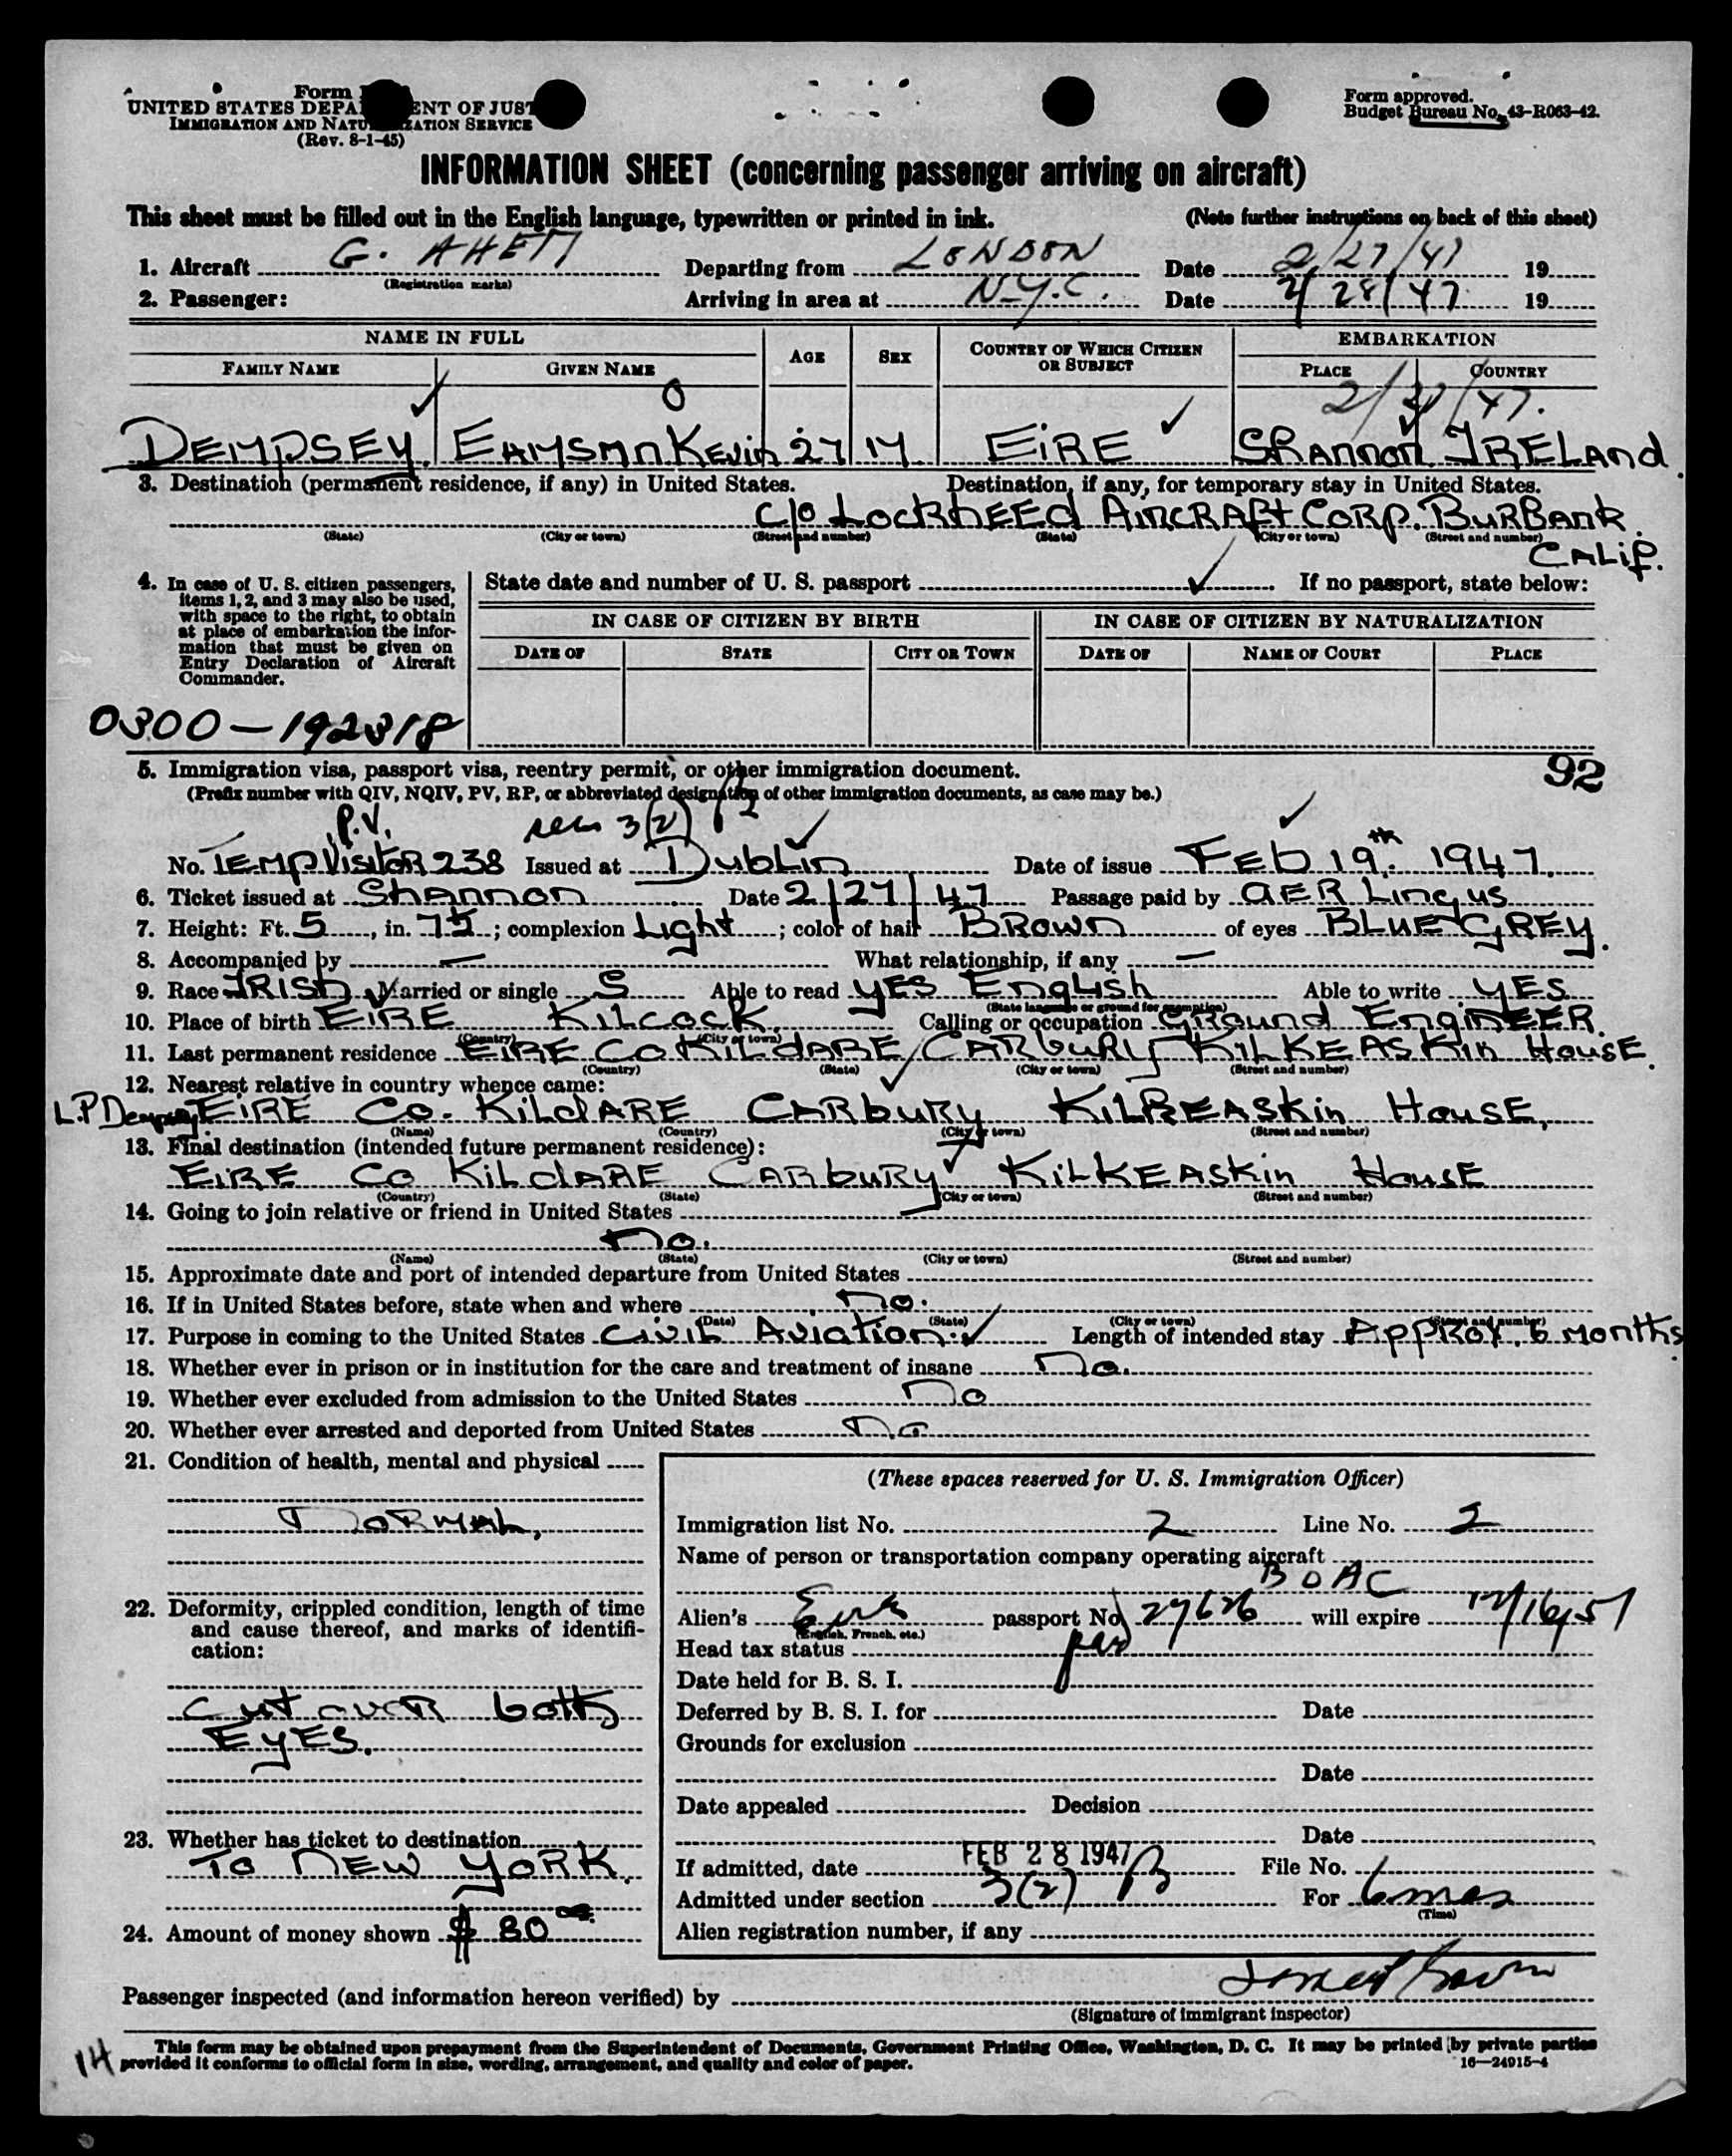 Form
UNITED STATES DEPA ENT OF JUST
IMMIGRATION AND NATU ZATION SERVICE
(Rev. 8-1-45)
Form approved.
Budget Bureau No. 43-R063-42.
INFORMATION SHEET (concerning passenger arriving on aircraft)
This sheet must be filled out in the English language, typewritten or printed in ink. (Note further instructions on back of this sheet)
1. Aircraft G. AHEM Departing from LONDON Date 2/27/47 19
(Registration marks)
2. Passenger: Arriving in area at N.Y.C. Date 2/28/47 19
NAME IN FULL AGE SEX COUNTRY OF WHICH CITIZEN OR SUBJECT EMBARKATION
FAMILY NAME GIVEN NAME PLACE COUNTRY
0 /47.
DEMPSEY. Kevin 27 M EiRE SHannon IRELand.
3. Destination (permanent residence, if any) in United States. Destination, if any, for temporary stay in United States.
c/o LockHEEd AIRCRAFt CoRp. BuRBank.
(State) (City or town) (Street and number) (State) (City or town) (Street and number)
CALiF.
4. In case of U. S. citizen passengers, items 1, 2, and 3 may also be used, with space to the right, to obtain at place of embarkation the information that must be given on Entry Declaration of Aircraft Commander.
State date and number of U. S. passport If no passport, state below:
IN CASE OF CITIZEN BY BIRTH IN CASE OF CITIZEN BY NATURALIZATION
DATE OF STATE CITY OR TOWN DATE OF NAME OF COURT PLACE
0300-192318
92
5. Immigration visa, passport visa, reentry permit, or other immigration document.
(Prefix number with QIV, NQIV, PV, RP, or abbreviated designation of other immigration documents, as case may be.)
P.V. 3(2)
No. TEMP VisitoR 238 Issued at Dublin Date of issue FEb 19th 1947.
6. Ticket issued at SHannon Date 2/27/47 Passage paid by AER Lingus
7. Height: Ft. 5, in. 7½; complexion Light; color of hair BRown of eyes BLUE GREY.
8. Accompanied by — What relationship, if any —
9. Race IRISH Married or single S Able to read YES EngLisH Able to write YES
(State language or ground for exemption)
10. Place of birth EiRE KiLcock. Calling or occupation GRound EnginEER.
(Country) (City or town)
11. Last permanent residence EiRE Co KiLdARE CARbuRy KiLKEASKin HousE.
(Country) (State) (City or town) (Street and number)
12. Nearest relative in country whence came:
L.P Dempsey EiRE Co. KiLdARE CARbuRy KiLKEASkin HousE.
(Name) (Country) (City or town) (Street and number)
13. Final destination (intended future permanent residence):
EiRE Co KiLdARE CARbuRy KiLKEASkin HousE
(Country) (State) (City or town) (Street and number)
14. Going to join relative or friend in United States
no.
(Name) (State) (City or town) (Street and number)
15. Approximate date and port of intended departure from United States
16. If in United States before, state when and where no.
(Date) (State) (City or town) (Street and number)
17. Purpose in coming to the United States CiviL AviAtion. Length of intended stay AppRox. 6 months.
18. Whether ever in prison or in institution for the care and treatment of insane no.
19. Whether ever excluded from admission to the United States no
20. Whether ever arrested and deported from United States no
21. Condition of health, mental and physical
noRMAL.
22. Deformity, crippled condition, length of time and cause thereof, and marks of identification:
cut ovER both
EyES.
23. Whether has ticket to destination
To NEW YoRK.
24. Amount of money shown $ 80 00
(These spaces reserved for U. S. Immigration Officer)
Immigration list No. 2 Line No. 2
Name of person or transportation company operating aircraft
BOAC
Alien's Eire passport No. 27626 will expire 12/16/51
(English, French, etc.)
Head tax status
Date held for B. S. I.
Deferred by B. S. I. for Date
Grounds for exclusion
Date
Date appealed Decision
Date
If admitted, date FEB 28 1947 File No.
Admitted under section 3(2) For 6 mos
(Time)
Alien registration number, if any
Passenger inspected (and information hereon verified) by
(Signature of immigrant inspector)
This form may be obtained upon prepayment from the Superintendent of Documents, Government Printing Office, Washington, D. C. It may be printed by private parties
provided it conforms to official form in size, wording, arrangement, and quality and color of paper. 16—24915-4
14